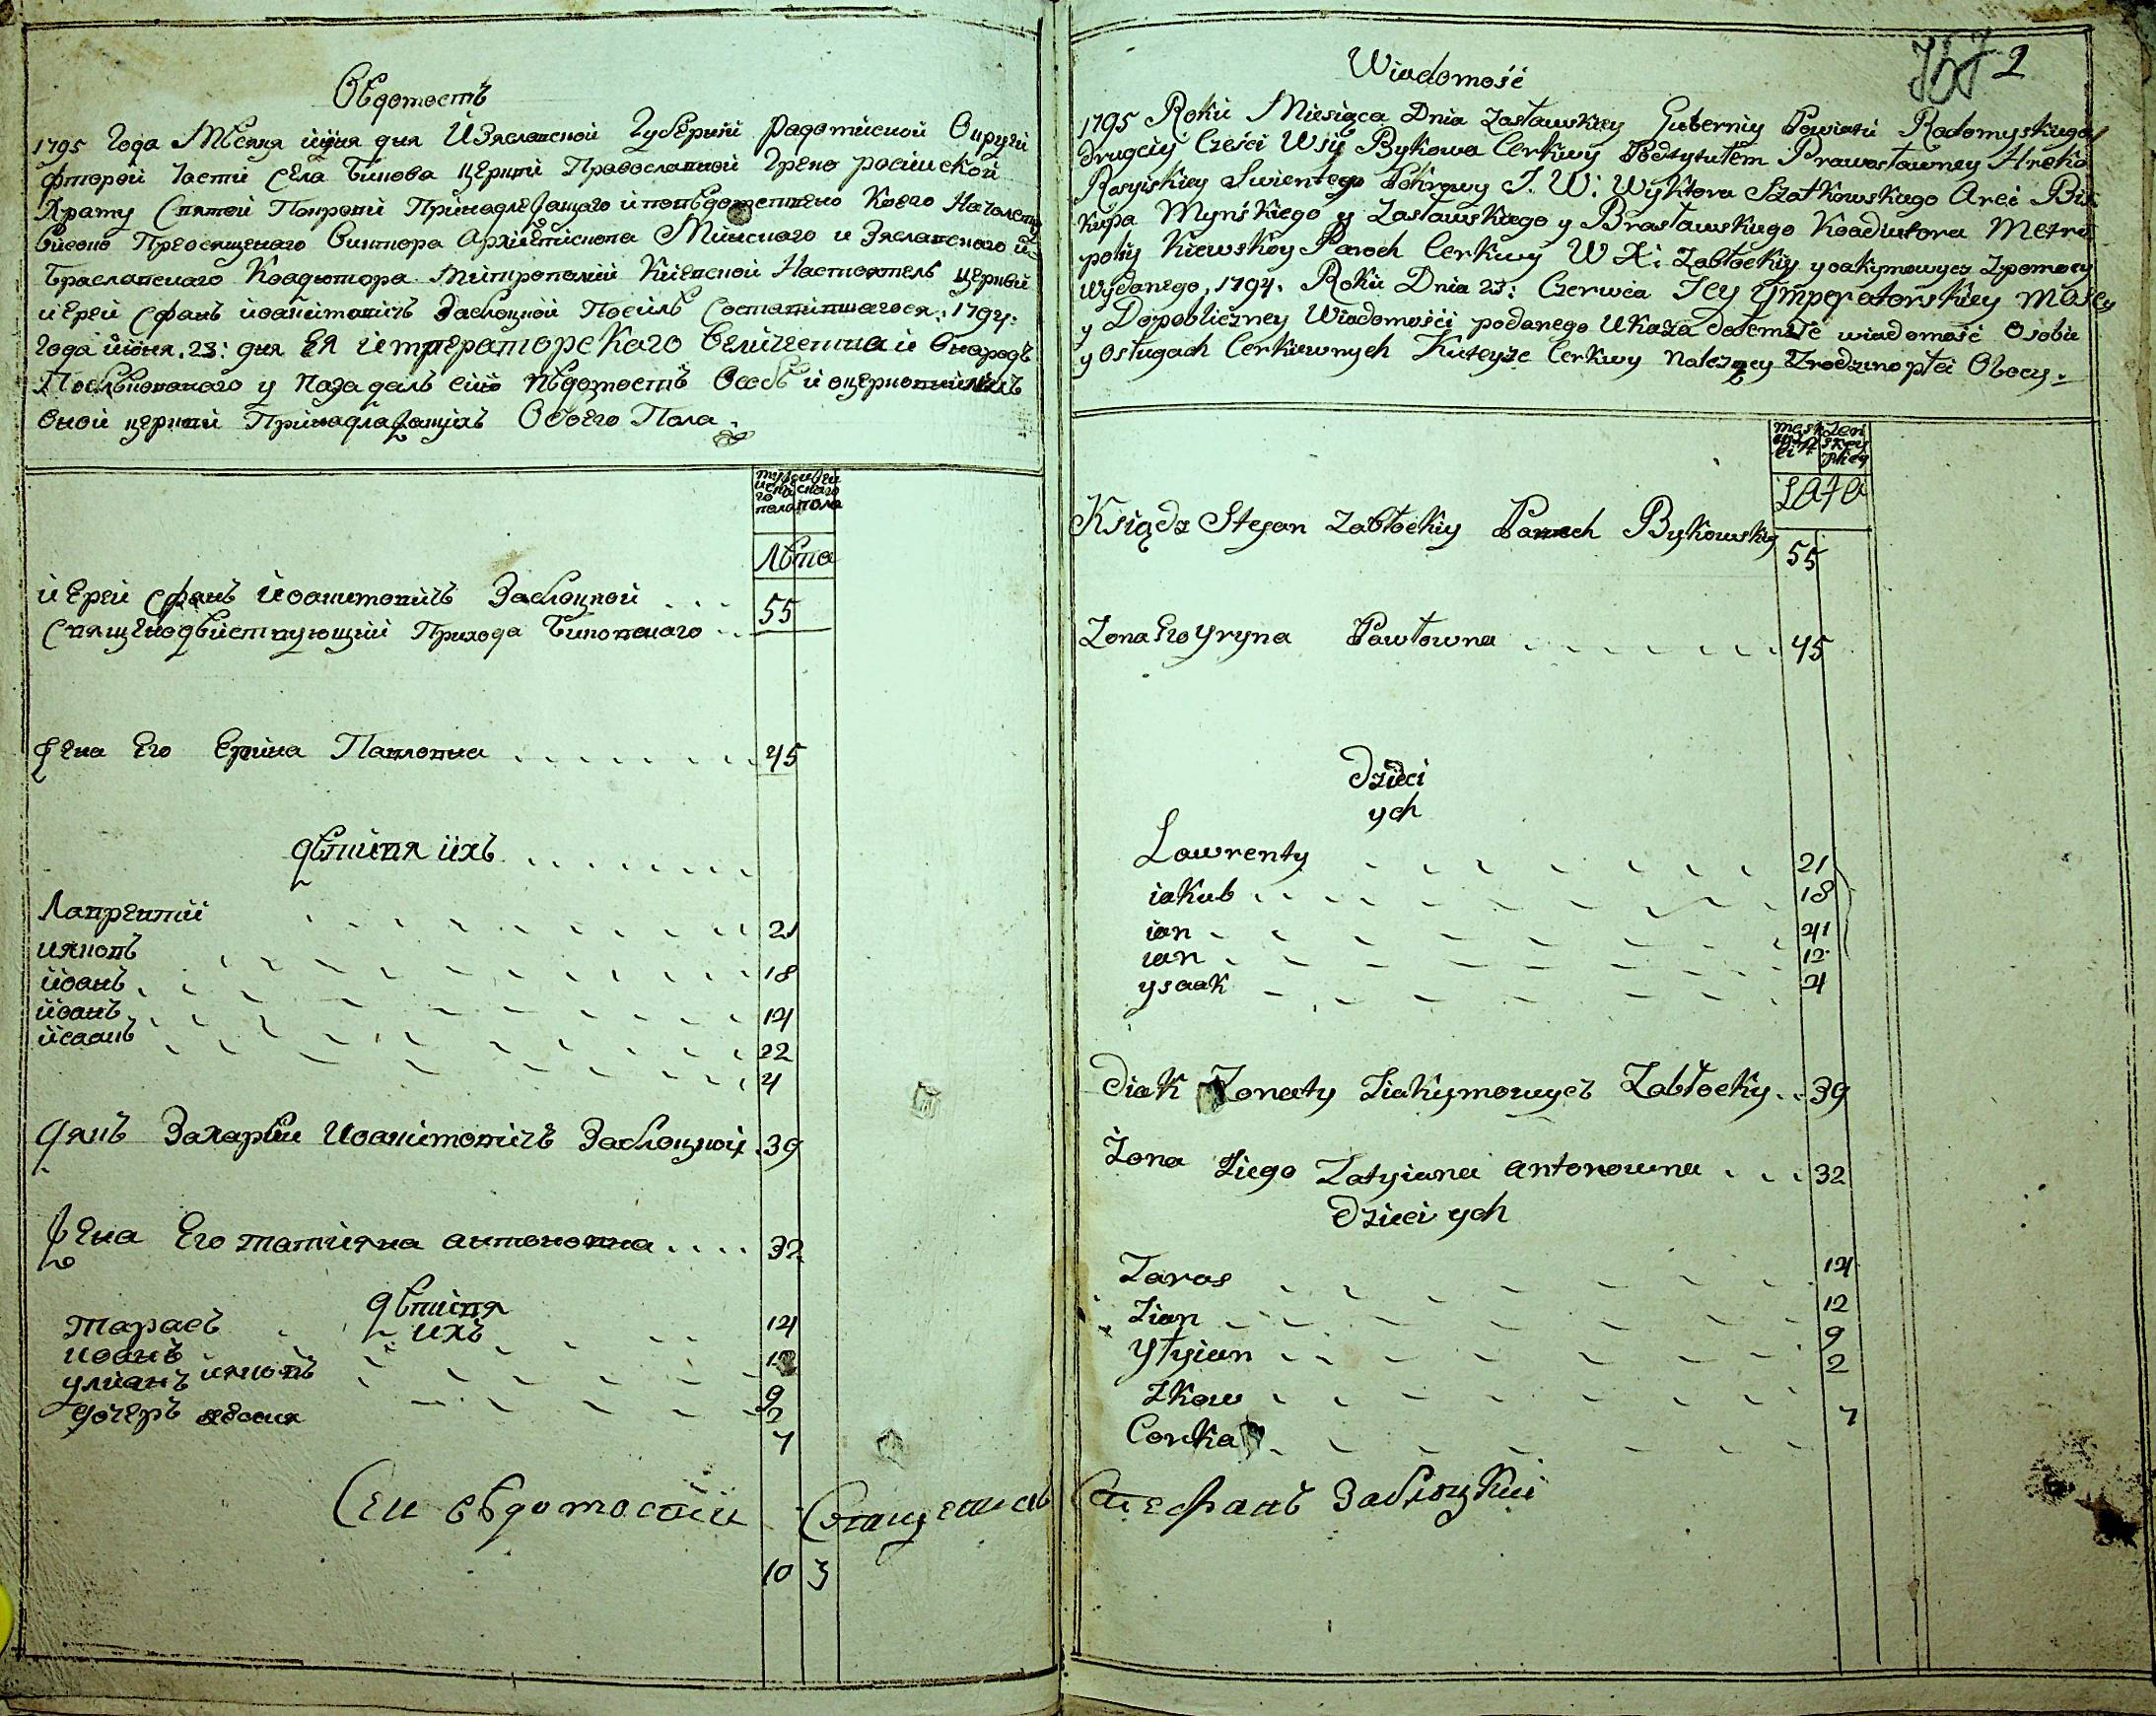 Обдомость
1795 Года Месяца июня дня Изяславской Губернии Радомиской Округи
фторой Части Села Бикова церкви Православной Греко росииской
Храму Святой Покрови
Преосвященаго Виктора Архиепископа Минскаго и Зяславскаго и
Браславскаго Коадютора Митрополии Киевской Настоятель церкви
иерей Сфанъ иоакимовичъ Заблоцкой После Состоявшагося: 1794:
Года июня. 23: дня ЕЯ императорскаго Величества и
у каза далъ сию ведомость Особъ и
Оной церкви Принадлежащихъ Обоего Пола.
мужескаго пола
женскаго пола
Лета
иерей Сфанъ иоакимовичъ Заблоцкой . . . 55
Священодействующий Прихода Биковскаго . .
жена Его Ерина Павловна . . . . . . . 45
детища ихъ . . . . . . .
Лаврентии 21
ияковъ 18
иоанъ 14
иоанъ 22
исаакъ 4
дякъ Захарии Иоакимовичъ Заблоцкой . 39
жена Его татияна антоновна . . . . 32
детища
ихъ
тарасъ 14
иоанъ 12
улианъ 9
ияковъ 2
дочеръ 7
Сеи ведомости Священикъ Стефанъ Заблоцкии
10 3
Wiadomość
2
1795 Roku Miesiąca Dnia Zasławskiey Guberniy Powiatu Radomyskiego
drugeiy Cześci Wsiy Bykowa Cerkwy Podtytułem Prawosławney Hreko
Rosyiskiey Swientego Pokrowy J. W: Wyktora Szatkowskiego Arci Bis
kupa Mynskiego y Zasławskiego y Brasławskiego Koadiutora Metro
poliy Kiewskoy Paroch Cerkwy W X: Zabłockiy yoakymowycz Zpomocy
wydanego, 1794. Roku Dnia 23: Czerwca Jey Ymperatorskiey Mości
y Dopobliczney Wiadomości podanego Ukaza dałem Te wiadomość Osobie
y Osługach Cerkiewnych Kuteyże Cerkwy Należzey Zrodzino płci Oboey.
męskiey płci
żenskiey płci
Lata
Ksiądz Stefan Zabłockiy Paroch Bykowskiy 55
Zona Ego Yryna Pawłowna . . . . . . . 45
Dzieci
ych
Lawrenty 21
iakub 18
ian 14
ian 12
ysaak 4
Diak Zonaty Jiakymowycz Zabłocky . . 39
Żona Jiego Tatyiana antonowna . . . 32
Dzieci ych
Taras 14
Jian 12
Yłyian 9
Jkow 2
Corka 7